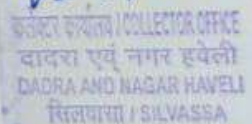 कलेक्टर कार्यालय / COLLECTOR OFFICE
दादरा एवं नगर हवेली
DADRA AND NAGAR HAVELI
सिलवासा / SILVASSA